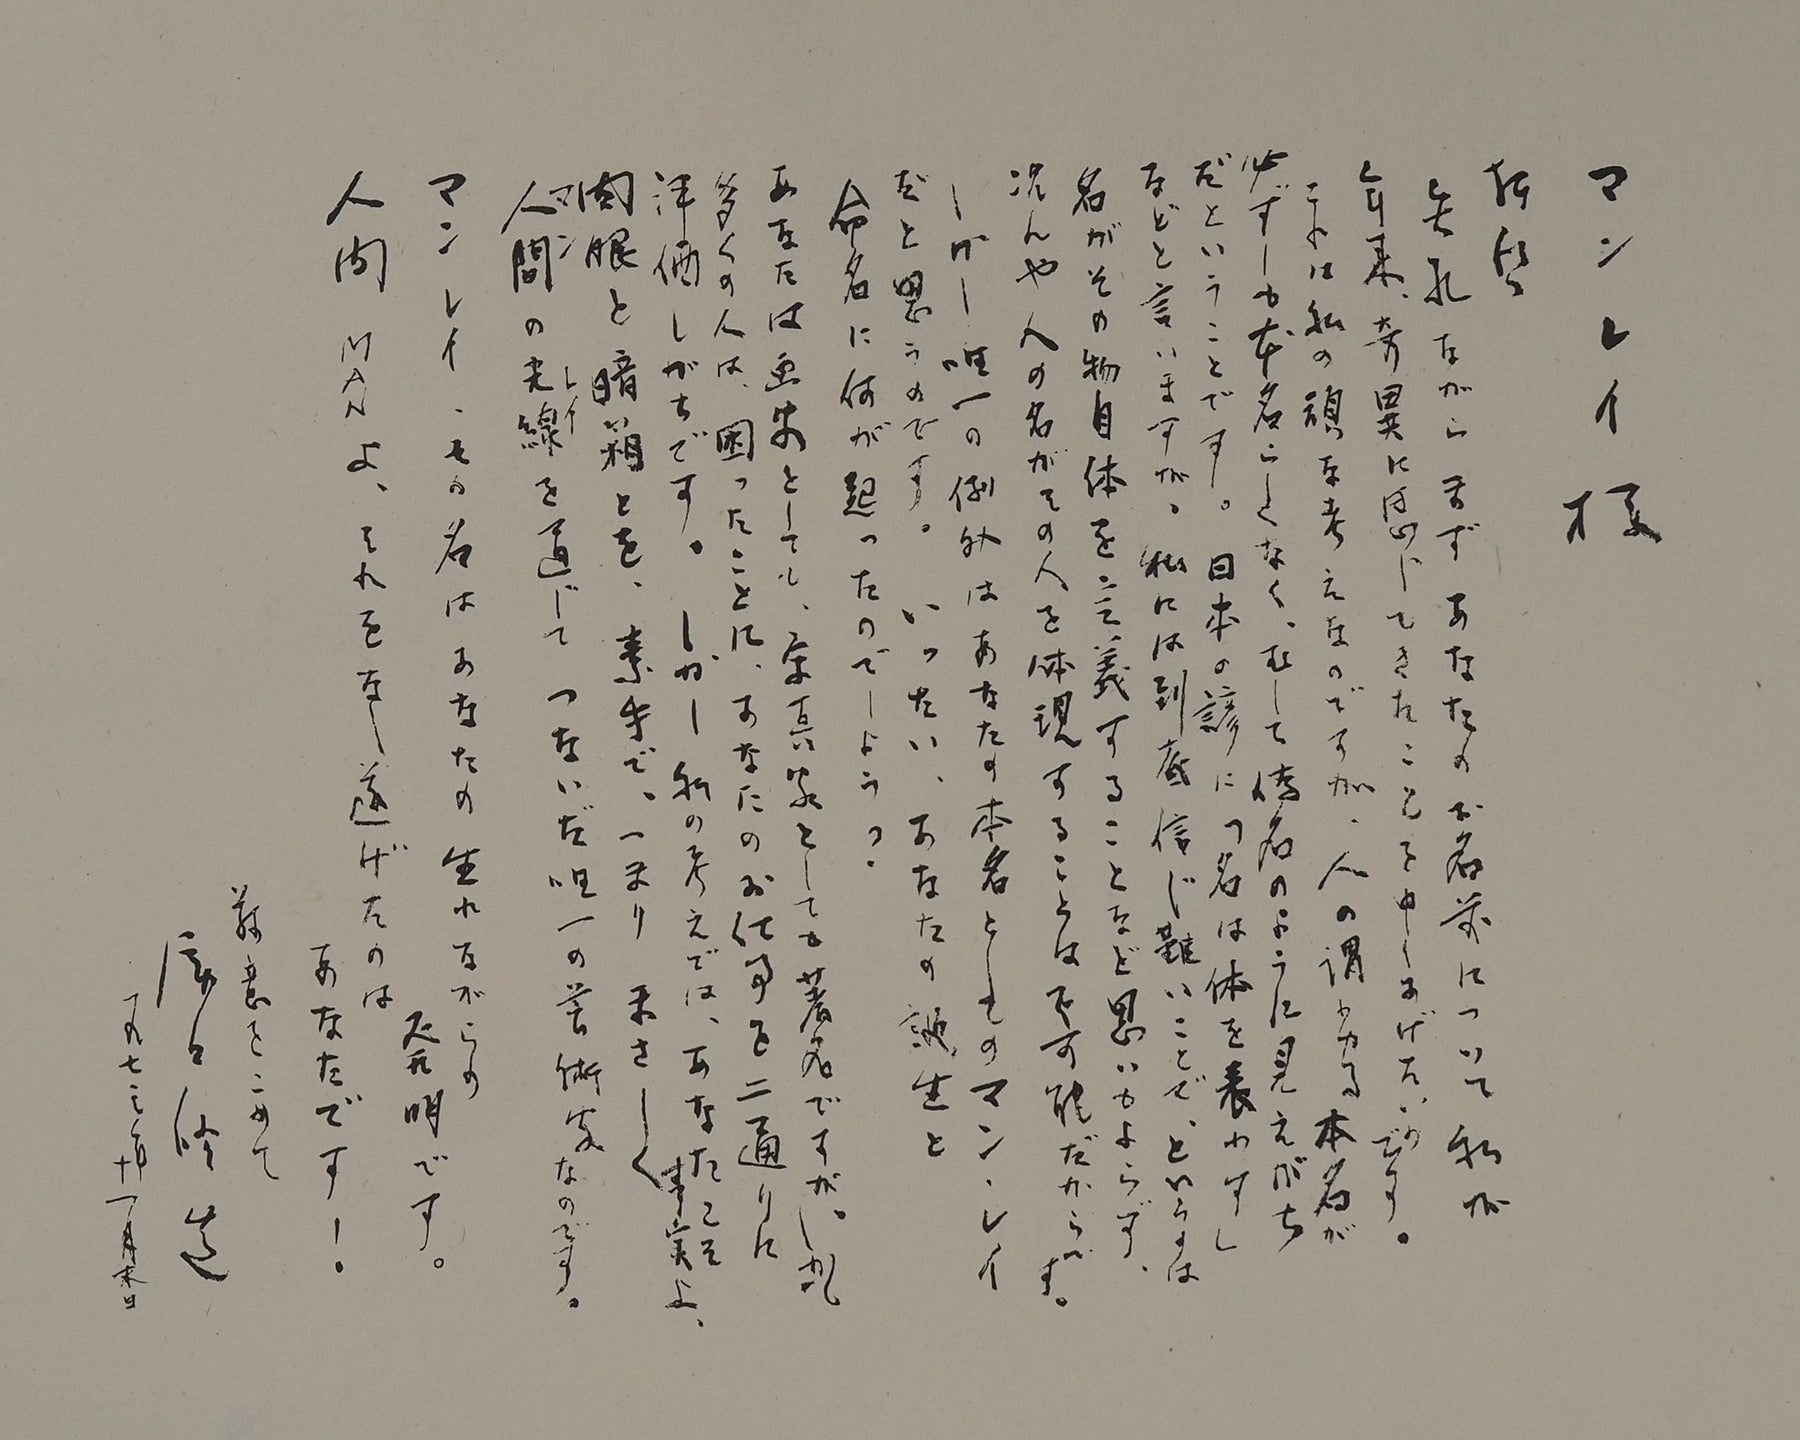 マンレイ様
拝啓
失礼ながらまずあなたのお名前について私が
年来、奇異に感じてきたことを申しあげたいのです。
これは私の頑な考えなのですが、人の謂わゆる本名が
必ずしも本名らしくなく、むしろ偽名のように見えがち
だということです。日本の諺に「名は体を表わす」
などと言いますが、私には到底信じ難いことで、というのは
名がその物自体を定義することなど思いもよらず、
況んや人の名がその人を体現することは不可能だからです。
しかし唯一の例外はあなたの本名としてのマン・レイ
だと思うのです。いったい、あなたの誕生と
命名に何が起ったのでしょうっ.
あなたは画家としても、写真家としても著名ですが、
多くの人は、困ったことに、あなたのお仕事を二通りに
評価しがちです。しかし私の考えでは、あなたこそ
肉眼と暗箱とを、素手で、つまり まさしく 事実上、
人間の光線を通じて つないだ唯一の芸術家なのです。
マン レイ
マンレイ、その名はあなたの生れながらの
発明です。
人間 MANよ、それをなし遂げたのは
あなたです！.
敬意をこめて
瀧口修造
一九七三年十一月末日